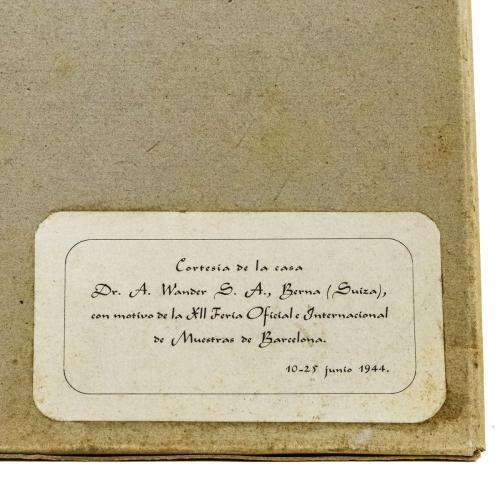 Cortesía de la casa
Dr. A. Wander S. A., Berna (Suiza),
con motivo de la XII Feria Oficial e Internacional
de Muestras de Barcelona.
10-25 junio 1944.